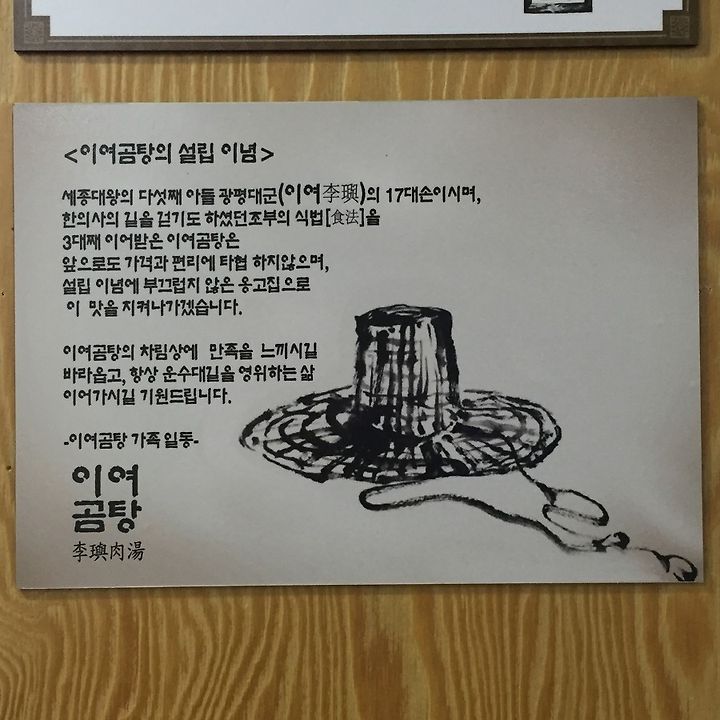 <이여곰탕의 설립 이념>
세종대왕의 다섯째 아들 광평대군(이여李璵)의 17대손이시며,
한의사의 길을 걷기도 하셨던조부의 식법[食法]을
3대째 이어받은 이여곰탕은
앞으로도 가격과 편리에 타협 하지않으며,
설립 이념에 부끄럽지 않은 옹고집으로
이 맛을 지켜나가겠습니다.
이여곰탕의 차림상에 만족을 느끼시길
바라옵고, 항상 운수대길을 영위하는 삶
이어가시길 기원드립니다.
-이여곰탕 가족 일동-
이여
곰탕
李璵肉湯